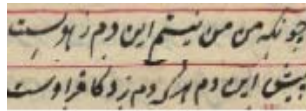 چونکه من من نیستم این دم ز هوست
پیش این دم هرکه دم زد کافر اوست